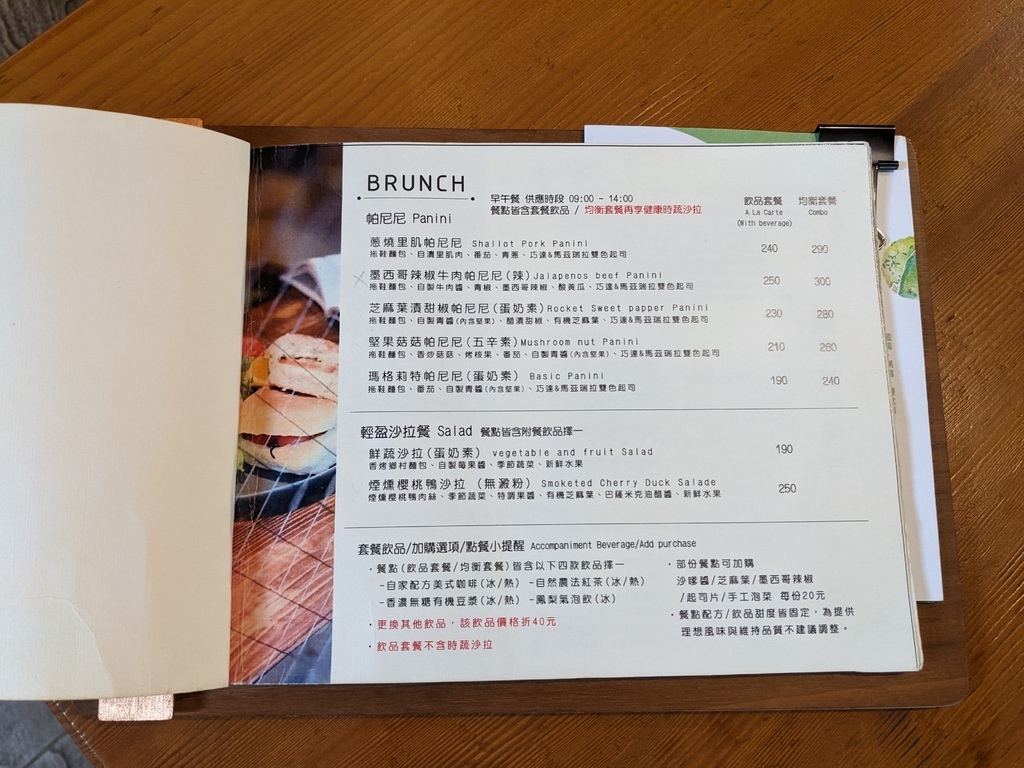 BRUNCH
早午餐 供應時段 09:00 - 14:00
餐點皆含套餐飲品 / 均衡套餐再享健康時蔬沙拉
飲品套餐 均衡套餐
A La Carte Combo
(With beverage)
帕尼尼 Panini
蔥燒里肌帕尼尼 Shallot Pork Panini 240 290
拖鞋麵包、自漬里肌肉、番茄、青蔥、巧達&馬茲瑞拉雙色起司
墨西哥辣椒牛肉帕尼尼(辣)Jalapenos beef Panini 250 300
拖鞋麵包、自製牛肉醬、青椒、墨西哥辣椒、酸黃瓜、巧達&馬茲瑞拉雙色起司
芝麻葉漬甜椒帕尼尼(蛋奶素)Rocket Sweet papper Panini 230 280
拖鞋麵包、自製青醬(內含堅果)、醋漬甜椒、有機芝麻葉、巧達&馬茲瑞拉雙色起司
堅果菇菇帕尼尼(五辛素)Mushroom nut Panini 210 260
拖鞋麵包、香炒菇菇、烤核果、番茄、自製青醬(內含堅果)、巧達&馬茲瑞拉雙色起司
瑪格莉特帕尼尼(蛋奶素) Basic Panini 190 240
拖鞋麵包、番茄、自製青醬(內含堅果)、巧達&馬茲瑞拉雙色起司
輕盈沙拉餐 Salad 餐點皆含附餐飲品擇一
鮮蔬沙拉(蛋奶素) vegetable and fruit Salad 190
香烤鄉村麵包、自製莓果醬、季節蔬菜、新鮮水果
煙燻櫻桃鴨沙拉 (無澱粉) Smoketed Cherry Duck Salade 250
煙燻櫻桃鴨肉絲、季節蔬菜、特調果醬、有機芝麻葉、巴薩米克油醋醬、新鮮水果
套餐飲品/加購選項/點餐小提醒 Accompaniment Beverage/Add purchase
・餐點(飲品套餐/均衡套餐)皆含以下四款飲品擇一
-自家配方美式咖啡(冰/熱) -自然農法紅茶(冰/熱)
-香濃無糖有機豆漿(冰/熱) -鳳梨氣泡飲(冰)
・更換其他飲品，該飲品價格折40元
・飲品套餐不含時蔬沙拉
・部份餐點可加購
沙嗲醬/芝麻葉/墨西哥辣椒
/起司片/手工泡菜 每份20元
・餐點配方/飲品甜度皆固定，為提供
理想風味與維持品質不建議調整。